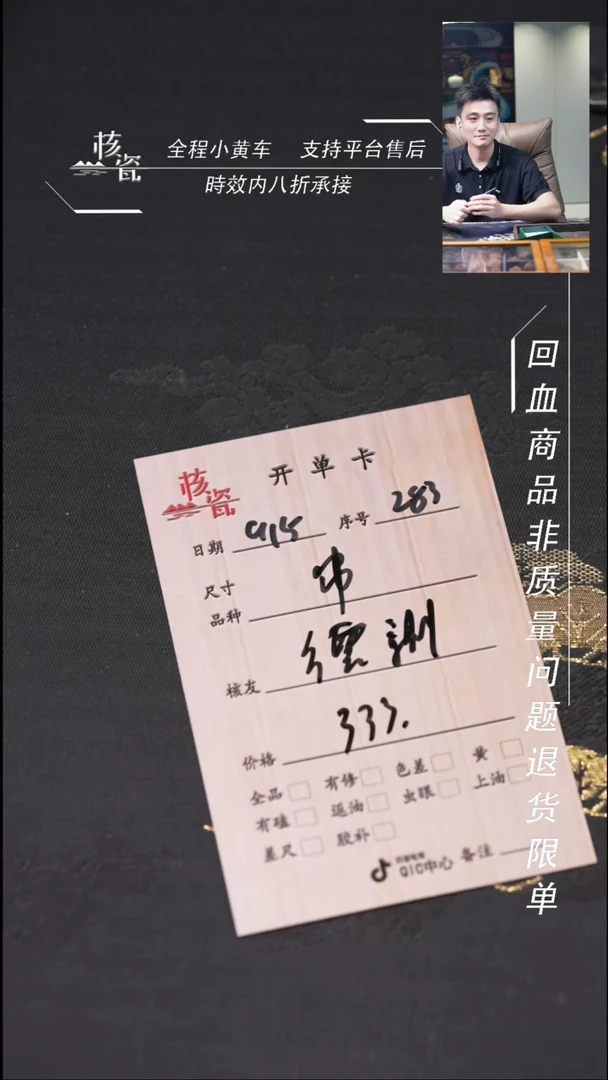 核瓷
全程小黄车 支持平台售后
時效内八折承接
回血商品非质量问题退货限单
核瓷
开单卡
日期 915 序号 283
尺寸
品种
核友
价格 333.
全品 有修 色差 黄
有磕 返油 虫眼 上油
差尺 胶补
QIC中心 备注